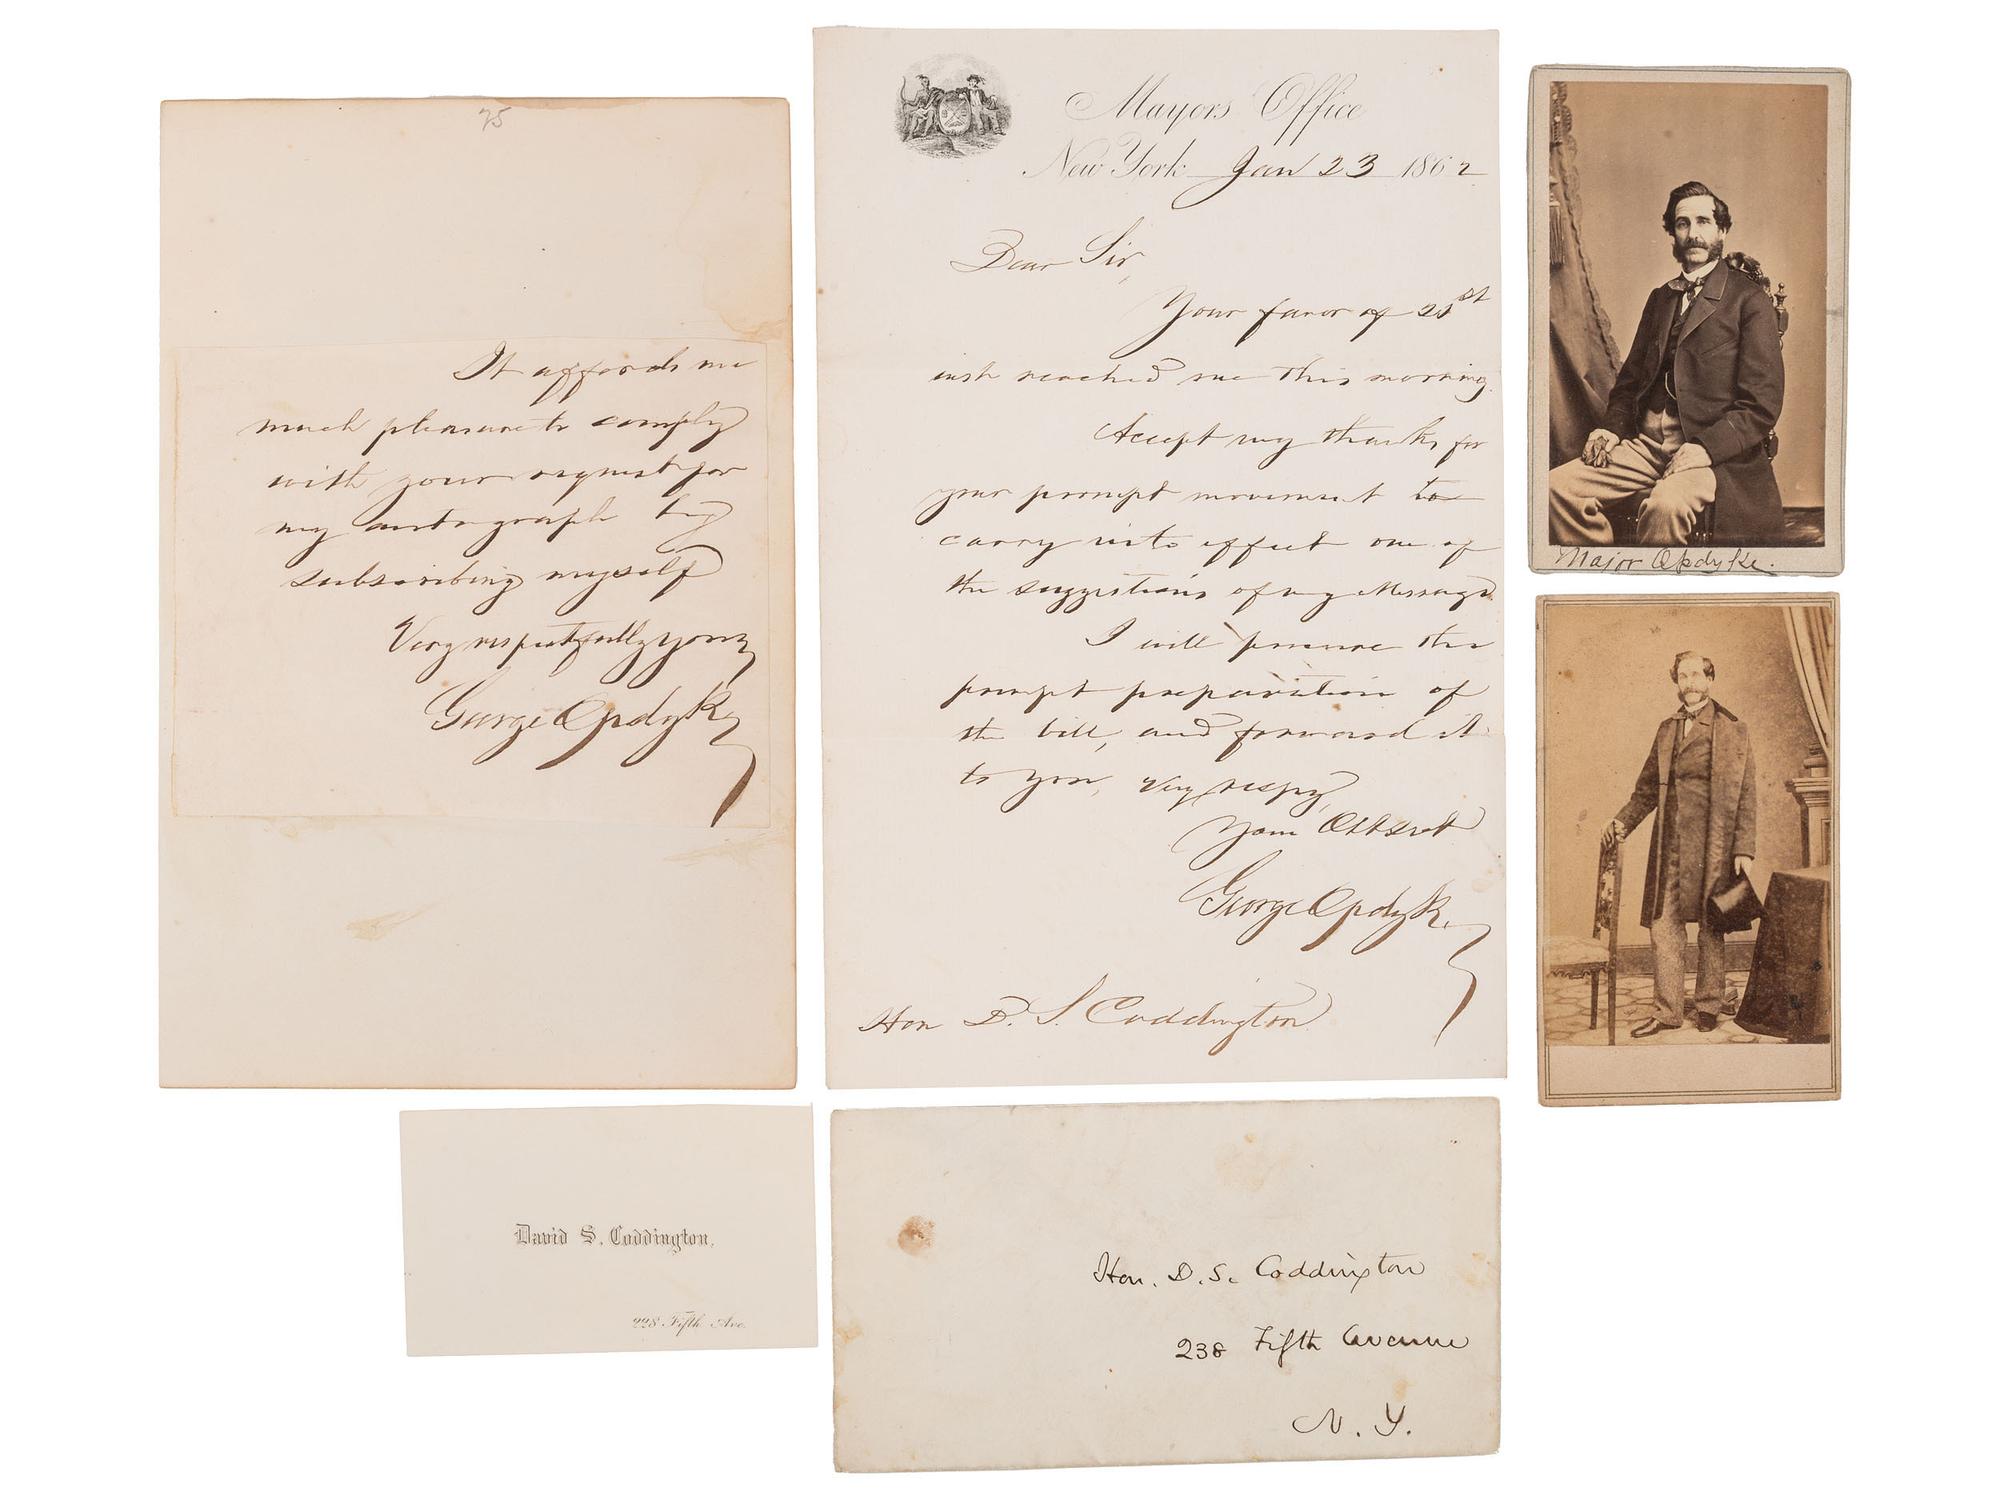 75
It affords me
much pleasure to comply
with your request for
my autograph by
subscribing myself
Very respectfully yours,
George Opdyke
Mayors Office
New York Jan 23 1862
Dear Sir,
Your favor of 21st
inst reached me this morning.
Accept my thanks for
your prompt movement to
carry into effect one of
the suggestions of my Message
I will procure the
prompt preparation of
the bill, and forward it
to you, Very respy,
Your Obt Servt
George Opdyke
Hon D. S. Coddington
Major Opdyke.
David S. Coddington,
228 Fifth Ave.
Hon. D. S. Coddington
238 Fifth Avenue
N. Y.